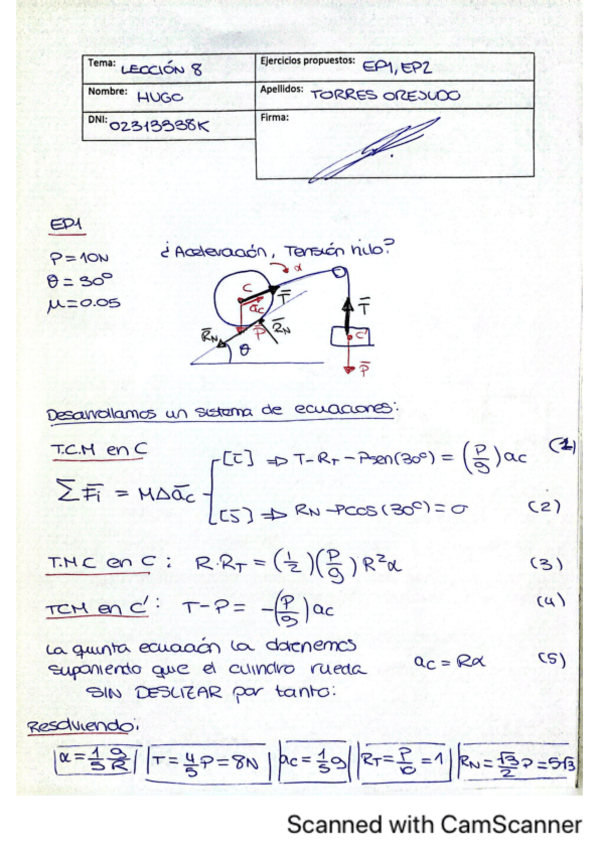 Tema: LECCIÓN 8
Ejercicios propuestos: EP1, EP2
Nombre: HUGO
Apellidos: TORRES OREJUDO
DNI: 02313938K
Firma:
EP1
P=10N
¿Aceleración, Tensión hilo?
θ=30º
μ=0.05
C
α
T̄
ac
P̄
R̄N
R̄N
θ
T̄
C'
P̄
Desarrollamos un sistema de ecuaciones:
T.C.M en C
[τ] ⇒ T-RT-Psen(30º) = (P/g) ac (1)
ΣF̄i = MΔāc
[5] ⇒ RN-Pcos(30º)=0 (2)
T.M.C en C: R·RT = (1/2)(P/g)R²α (3)
TCM en C': T-P= -(P/g)ac (4)
La quinta ecuación la obtenemos
suponiendo que el cilindro rueda
ac = Rα (5)
SIN DESLIZAR por tanto:
Resolviendo:
α = 1/5 g/R T = 4/5 P = 8N ac = 1/5 g RT = P/10 = 1 RN = √3/2 P = 5√3
Scanned with CamScanner